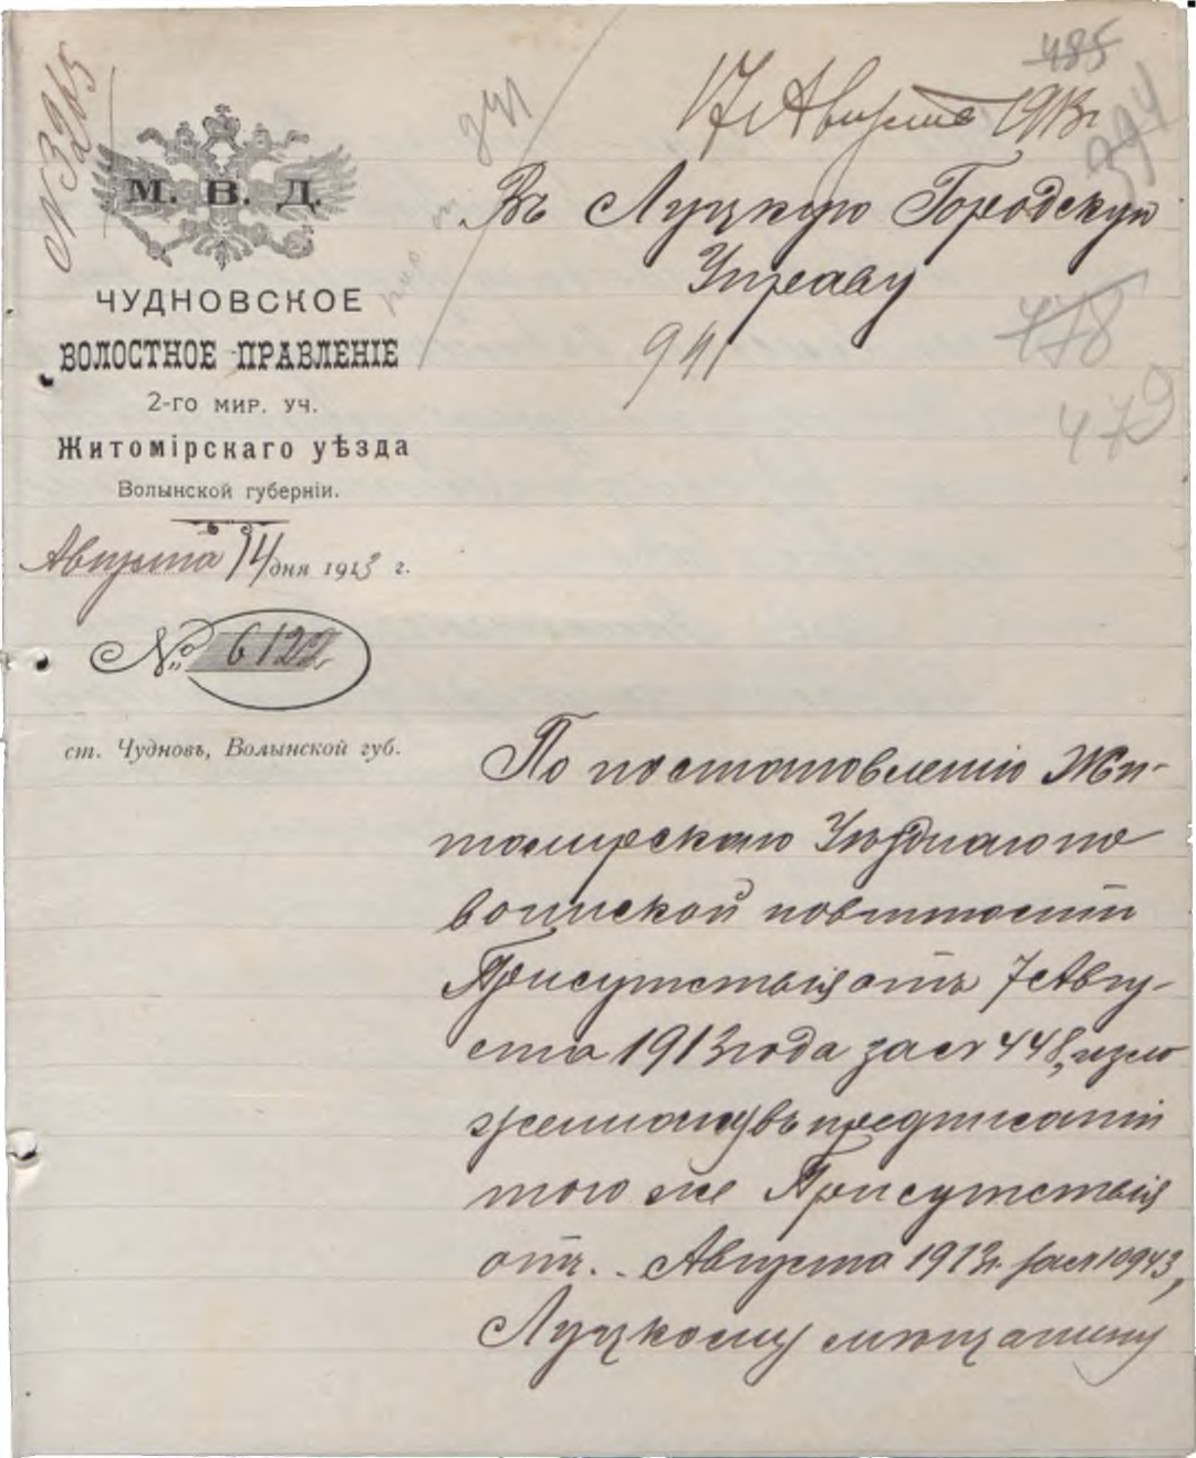 № 3265
485
17 Августа 1913 г
394
М. В. Д.
Въ Луцкую Городскую
Управу
941
478
479
ЧУДНОВСКОЕ
ВОЛОСТНОЕ ПРАВЛЕНІЕ
2-го мир. уч.
Житомірскаго уѣзда
Волынской губерніи.
Августа 14 дня 1913 г.
№ 6122
ст. Чудновъ, Волынской губ.
По постановленію Жи-
томирскаго Уѣзднаго по
воинской повинности
Присутствія отъ 7 Авгу-
ста 1913 года за № 448, изло
женному въ предписаніи
того же Присутствія
отъ .. Августа 1913 г. за № 10943,
Луцкому мѣщанину